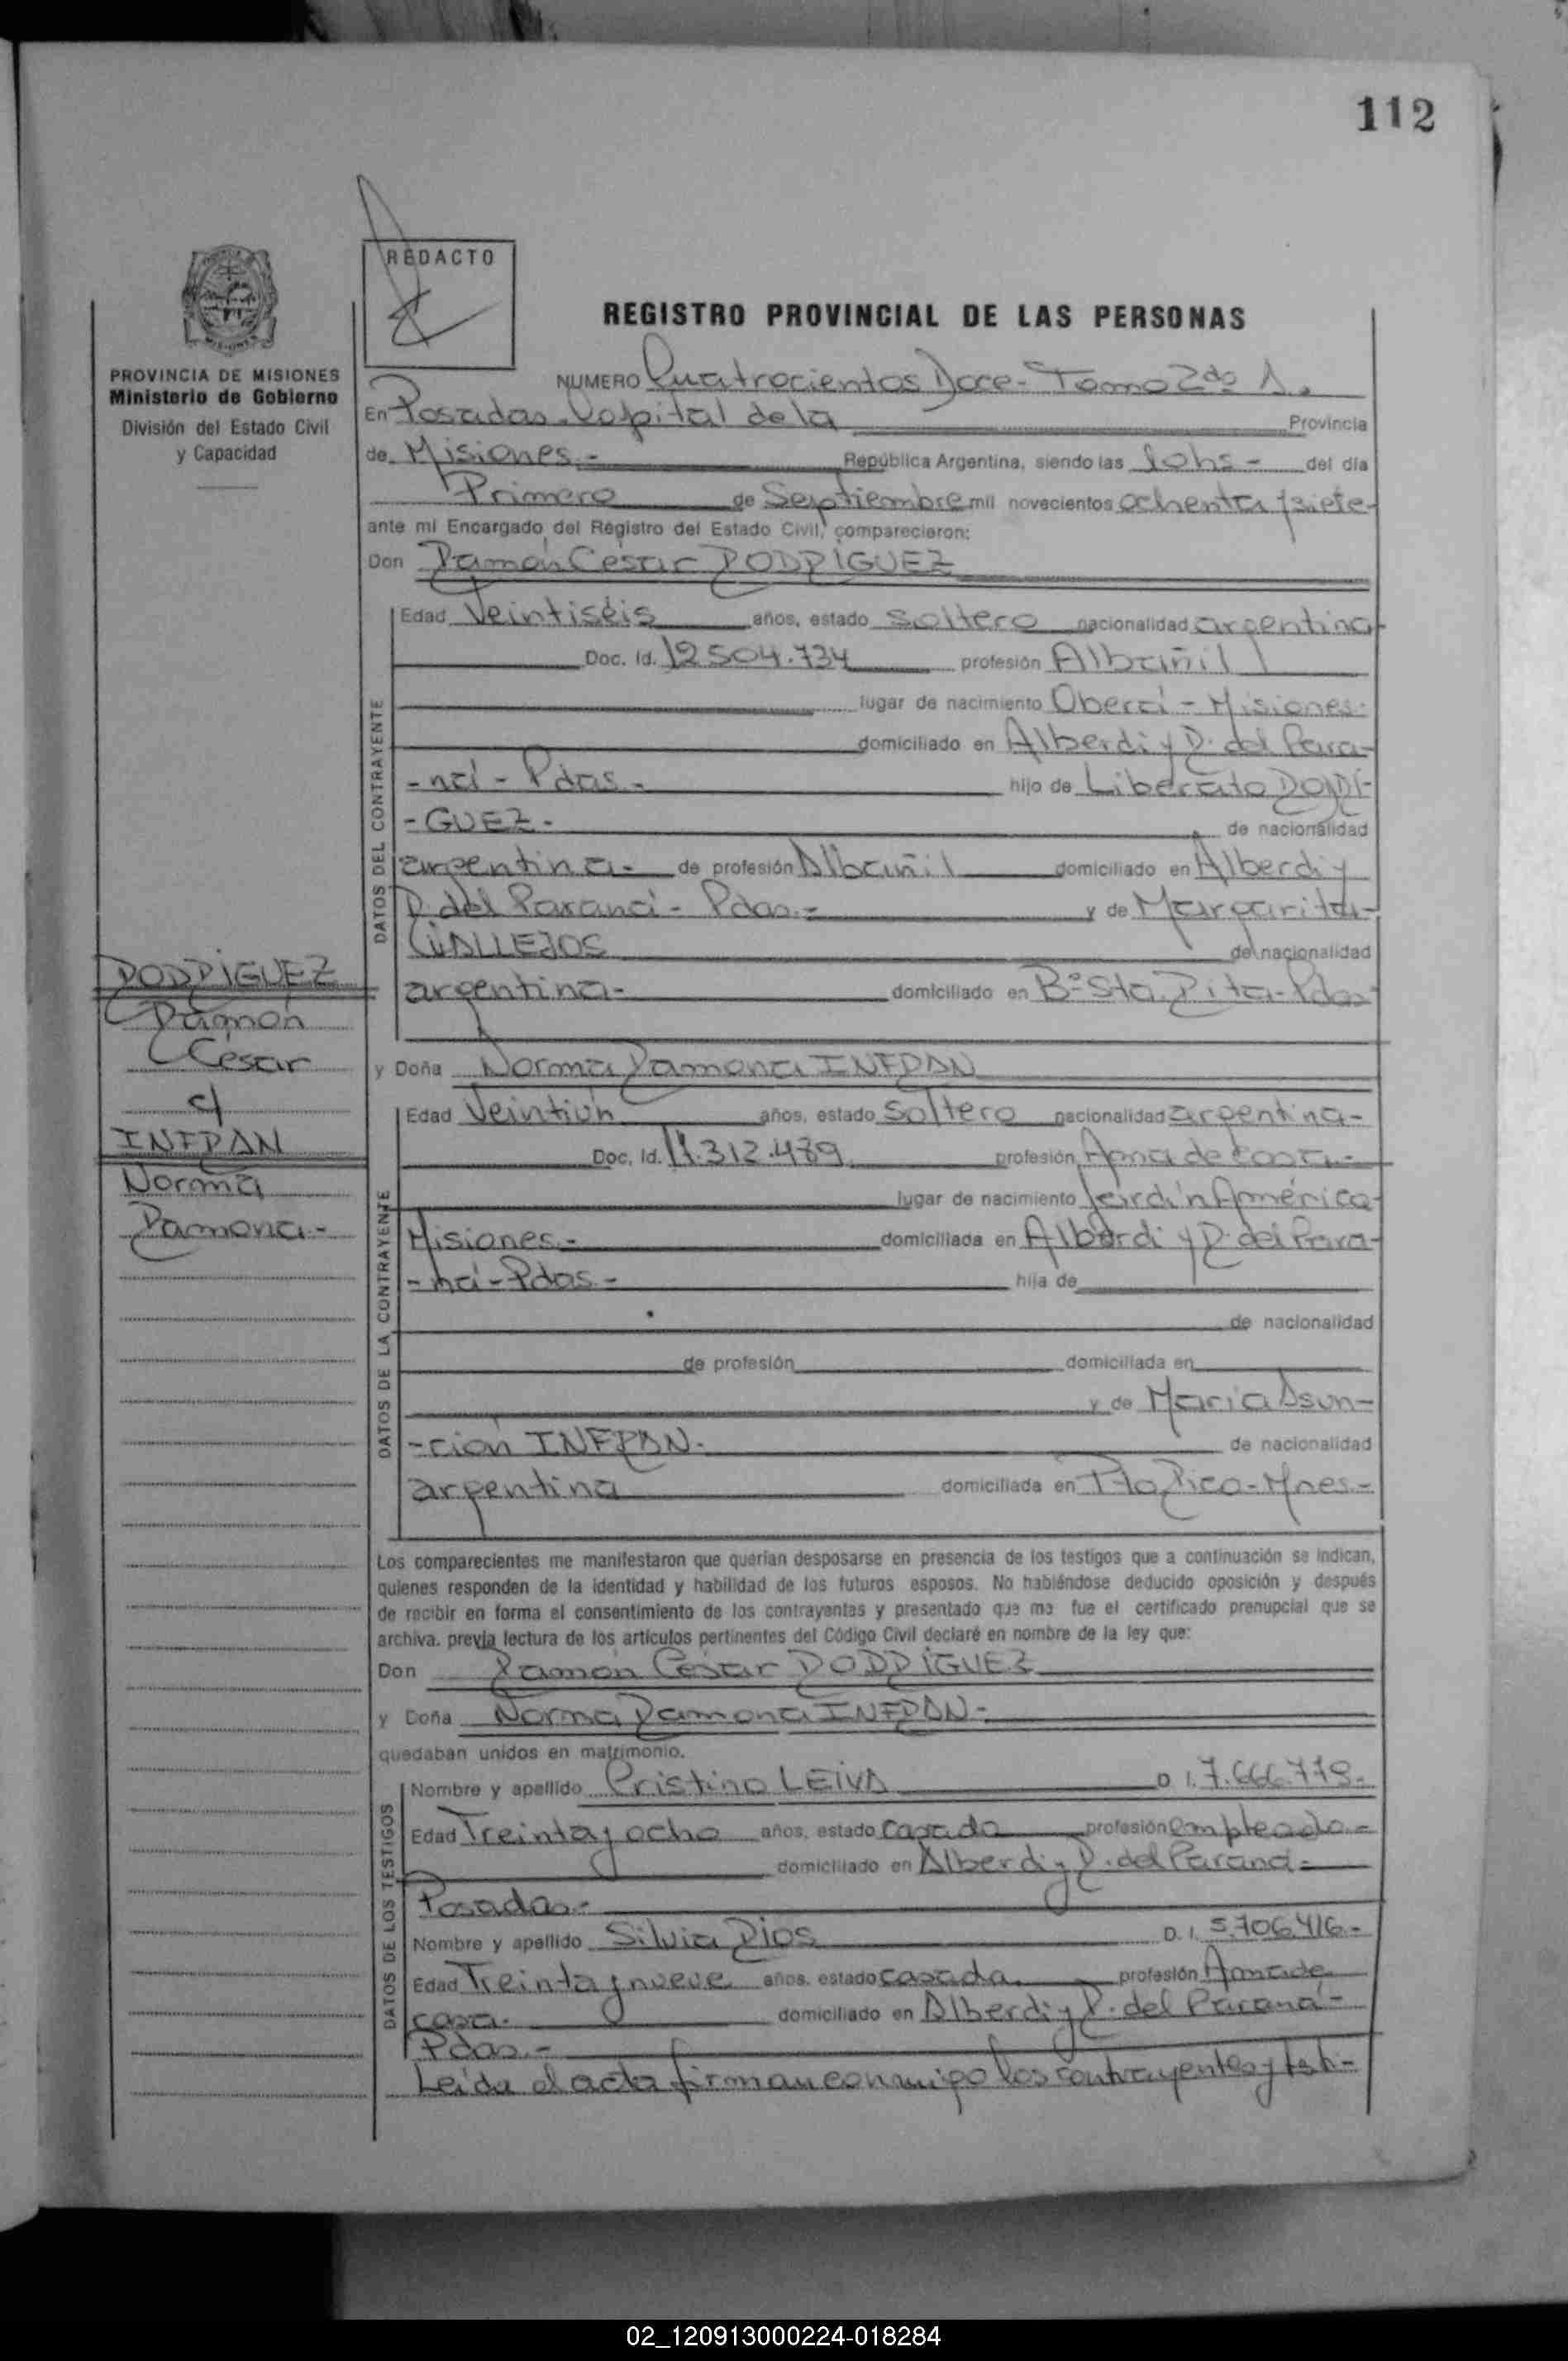 112
REDACTO
REGISTRO PROVINCIAL DE LAS PERSONAS
PROVINCIA DE MISIONES
Ministerio de Gobierno
División del Estado Civil
y Capacidad
NUMERO Cuatrocientos Doce - Tomo 2do A.
En Posadas Capital de la Provincia
de Misiones - República Argentina, siendo las 10 hs - del día
Primero de Septiembre mil novecientos ochenta y siete -
ante mi Encargado del Registro del Estado Civil, comparecieron:
Don Ramón César RODRÍGUEZ
DATOS DEL CONTRAYENTE
Edad Veintiséis años, estado soltero nacionalidad argentina
Doc. Id. 12.504.734 profesión Albañil
lugar de nacimiento Oberá - Misiones.
domiciliado en Alberdi y R. del Para-
-ná - Pdas - hijo de Liberato RODRÍ-
-GUEZ - de nacionalidad
argentina - de profesión Albañil domiciliado en Alberdi y
R. del Paraná - Pdas. - y de Margarita
VALLEJOS de nacionalidad
argentina - domiciliado en B° Sta. Rita - Pdas
RODRÍGUEZ
Ramón
César
c/
INFRAN
Norma
Ramona -
y Doña Norma Ramona INFRAN
DATOS DE LA CONTRAYENTE
Edad Veintiún años, estado soltero nacionalidad argentina -
Doc. Id. .312.489 profesión Ama de casa -
lugar de nacimiento Jardín América -
Misiones - domiciliada en Alberdi y R. del Para-
-ná - Pdas - hija de
de nacionalidad
de profesión domiciliada en
y de María Asun-
-ción INFRAN - de nacionalidad
argentina domiciliada en Pto Rico - Mnes. -
Los comparecientes me manifestaron que querían desposarse en presencia de los testigos que a continuación se indican,
quienes responden de la identidad y habilidad de los futuros esposos. No habiéndose deducido oposición y después
de recibir en forma el consentimiento de los contrayentes y presentado que me fue el certificado prenupcial que se
archiva. previa lectura de los artículos pertinentes del Código Civil declaré en nombre de la ley que:
Don Ramón César RODRÍGUEZ
y Doña Norma Ramona INFRAN -
quedaban unidos en matrimonio.
DATOS DE LOS TESTIGOS
Nombre y apellido Cristino LEIVA D. I. 7.666.779 -
Edad Treinta y ocho años, estado casado profesión empleado -
domiciliado en Alberdi y R. del Paraná -
Posadas -
Nombre y apellido Silvia Rios D. I. 5.706.416 -
Edad Treinta y nueve años, estado casada. profesión Ama de
casa. domiciliado en Alberdi y R. del Paraná -
Pdas. -
Leída el acta firman conmigo los contrayentes y testi-
02_120913000224-018284